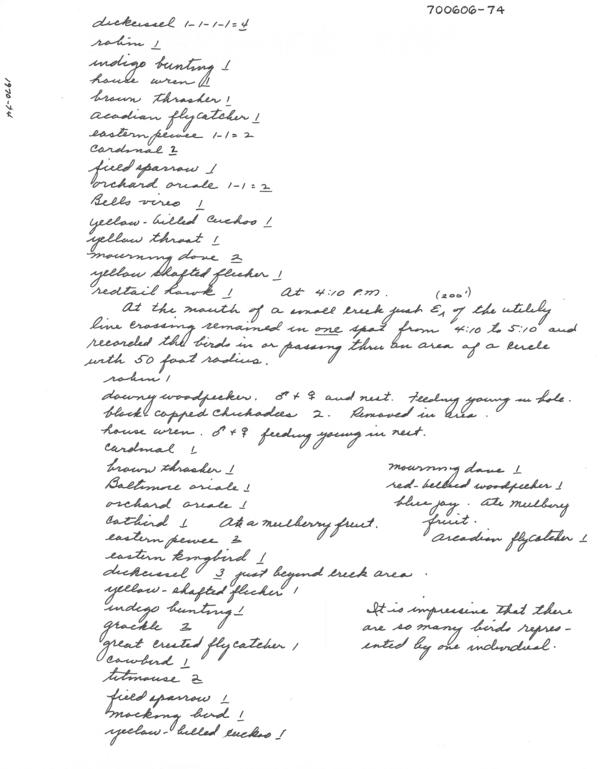 700606-74
1970-74
dickcissel 1-1-1-1=4
robin 1
indigo bunting 1
house wren 1
brown thrasher 1
acadian flycatcher 1
eastern pewee 1-1=2
cardinal 2
field sparrow 1
orchard oriole 1-1=2
Bells vireo 1
yellow-billed cuckoo 1
yellow throat 1
mourning dove 2
yellow shafted flicker 1
redtail hawk 1 At 4:10 P.M. (200')
At the mouth of a small creek just E, of the utility
line crossing remained in one spot from 4:10 to 5:10 and
recorded the birds in or passing thru an area of a circle
with 50 foot radius.
robin 1
downy woodpecker. ♂ + ♀ and nest. Feeding young in hole.
black-capped chickadees 2. Remained in area.
house wren. ♂ + ♀ feeding young in nest.
cardinal 1
brown thrasher 1
Baltimore oriole 1
orchard oriole 1
catbird 1 Ate a mulberry fruit.
eastern pewee 2
eastern kingbird 1
dickcissel 3 just beyond creek area.
yellow-shafted flicker 1
indigo bunting 1
grackle 2
great crested flycatcher 1
cowbird 1
titmouse 2
field sparrow 1
mocking bird 1
yellow-billed cuckoo 1
mourning dove 1
red-bellied woodpecker 1
blue jay. Ate mulberry
fruit.
Arcadian flycatcher 1
It is impressive that there
are so many birds repres-
ented by one individual.